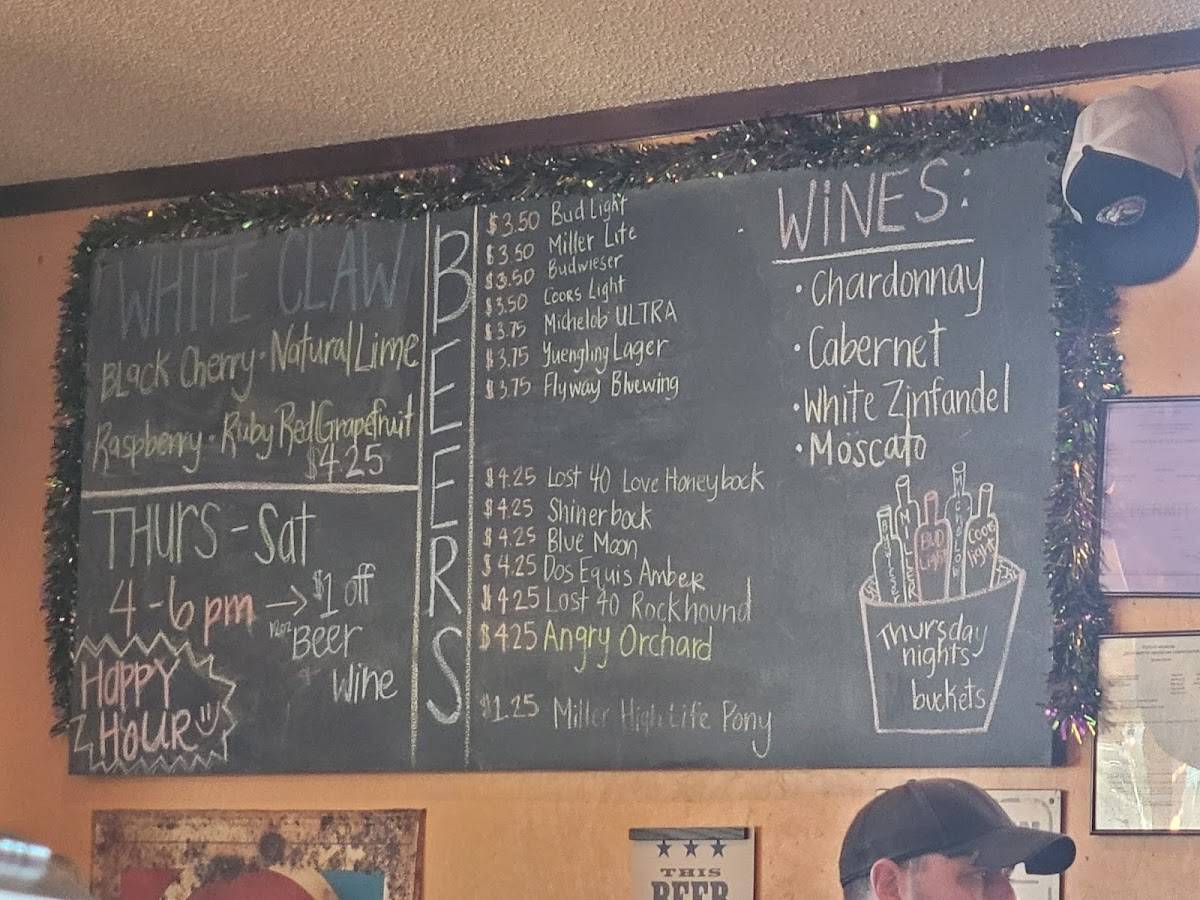 WHITE CLAW
Black Cherry · Natural Lime
Raspberry · Ruby Red Grapefruit
$4.25
THURS - Sat
4 - 6 pm → $1 off
Beer
Wine
HAPPY
HOUR
BEERS
$3.50 Bud Light
$3.50 Miller Lite
$3.50 Budwieser
$3.50 Coors Light
$3.75 Michelob ULTRA
$3.75 Yuengling Lager
$3.75 Flyway Bluewing
$4.25 Lost 40 Love Honeybock
$4.25 Shinerbock
$4.25 Blue Moon
$4.25 Dos Equis Amber
$4.25 Lost 40 Rockhound
$4.25 Angry Orchard
$1.25 Miller High Life Pony
WINES:
· Chardonnay
· Cabernet
· White Zinfandel
· Moscato
MILLER
BUD
Light
MICHELOB
Coors
light
Thursday
nights
buckets
THIS
BEER